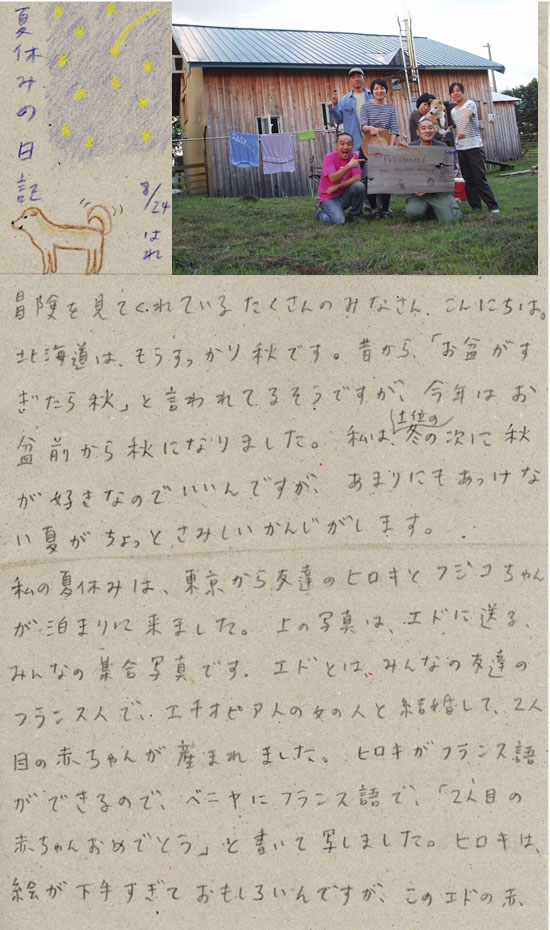 夏休みの日記
8/24 はれ
Félicitations!
冒険を見てくれているたくさんのみなさん、こんにちは。
北海道は、もうすっかり秋です。昔から、「お盆がす
ぎたら秋」と言われてるそうですが、今年はお
盆前から秋になりました。私は、1位の冬の次に秋
が好きなのでいいんですが、あまりにもあっけな
い夏がちょっとさみしいかんじがします。
私の夏休みは、東京から友達のヒロキとフジコちゃん
が泊まりに来ました。上の写真は、エドに送る、
みんなの集合写真です。エドとは、みんなの友達の
フランス人で、エチオピア人の女の人と結婚して、2人
目の赤ちゃんが産まれました。ヒロキがフランス語
ができるので、ベニヤにフランス語で、「2人目の
赤ちゃんおめでとう」と書いて写しました。ヒロキは、
絵が下手すぎておもしろいんですが、このエドの赤、